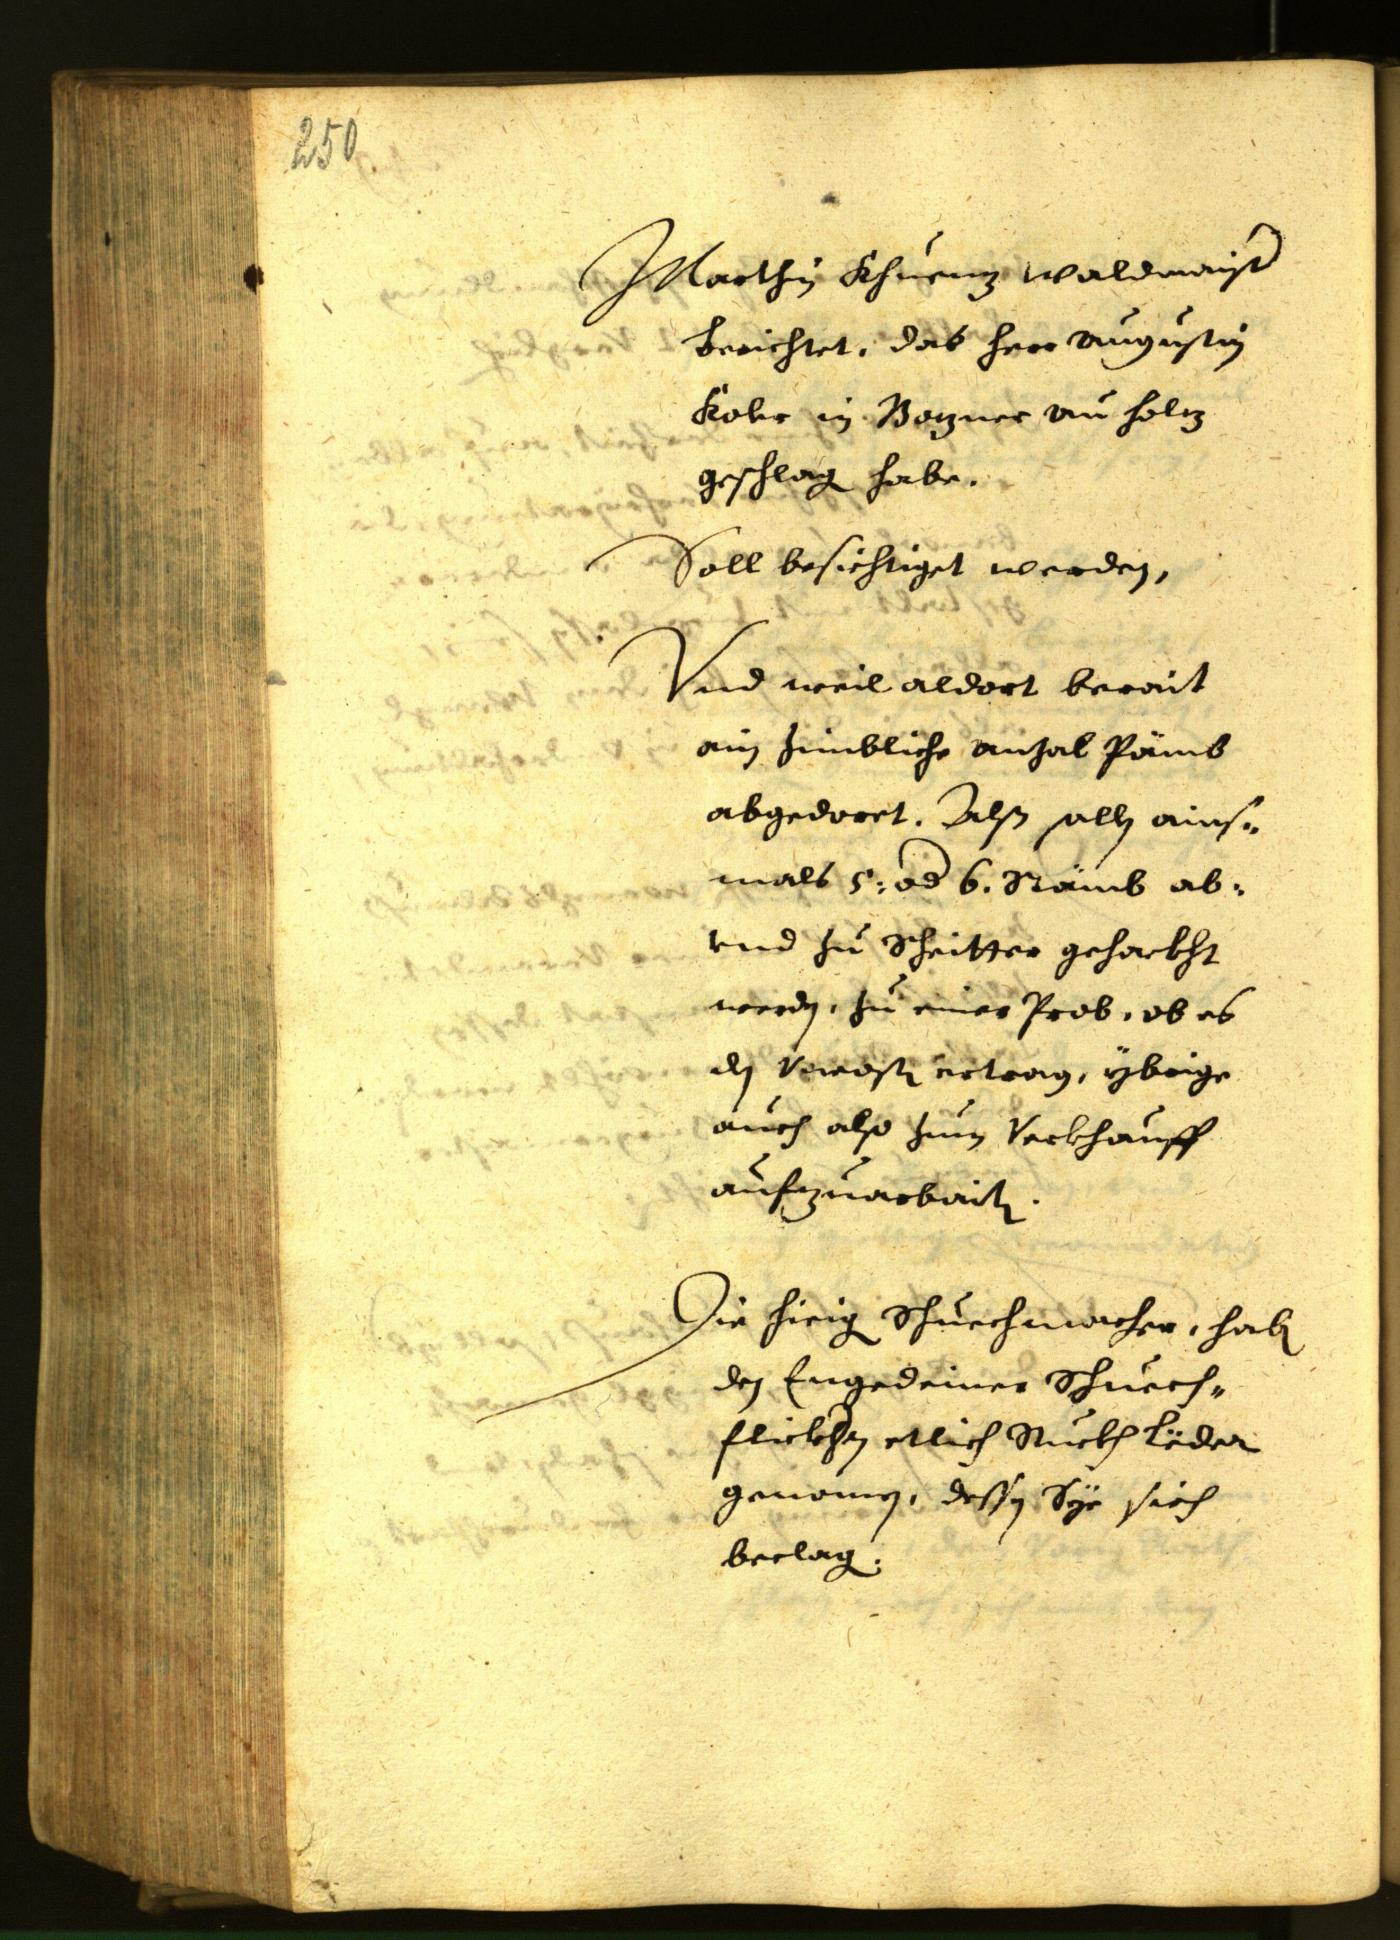 250
Marthin Khuenz waldmaist
berichtet, das herr Augustin
Kober in Bozner au holz
geschlag habe.
Soll besichtiget werden,
Vnd weil aldort berait
ain zimbliche anzal Pämb
abgedoret. Alß solln ains-
mals 5: od 6. Stämb ab-
vnd zu Scheitter gehackht
werdn, zu einer Prob, ob es
dn Vncostn ertrag, ÿbrige
auch also zum Verkhauff
aufzuarbaitn.
Die hieig Schuechmacher, habn
den Engedeiner Schuech-
flickhern etlich Stuckh Leder
genomen, dessn Sÿe sich
beclag.